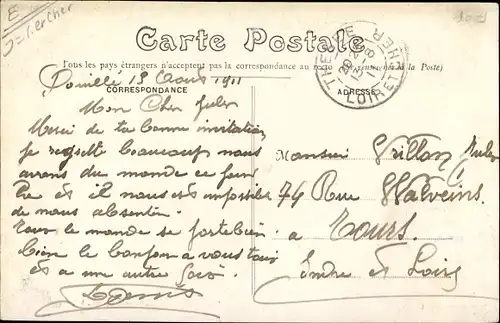 Carte Postale
Tous les pays étrangers n'acceptent pas la correspondance au (à la Poste)
CORRESPONDANCE
ADRESSE
THE
LOIR ET CHER
13 Août 1911
Mon Cher Jules
Merci de ta bonne invitation
Je regrette beaucoup nous
avons du monde ce jour
là et il nous est impossible
de nous absenter.
Tout le monde se porte bien
bien le bonjour a vous tous
et a une autre fois
Louis
Monsieur Vrillon Jules
74 Rue Walvein
a Tours.
Indre et Loire